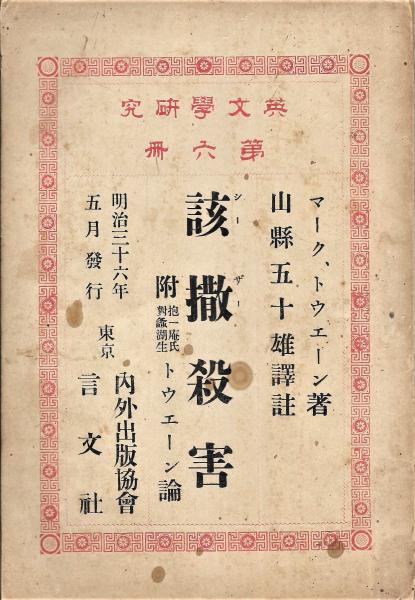 英文學研究
第六冊
マーク、トウエーン著
山縣五十雄譯註
該撒殺害
シーザー
附 抱一庵氏對蠡湖生 トウエーン論
明治三十六年
五月發行
東京
內外出版協會
言文社